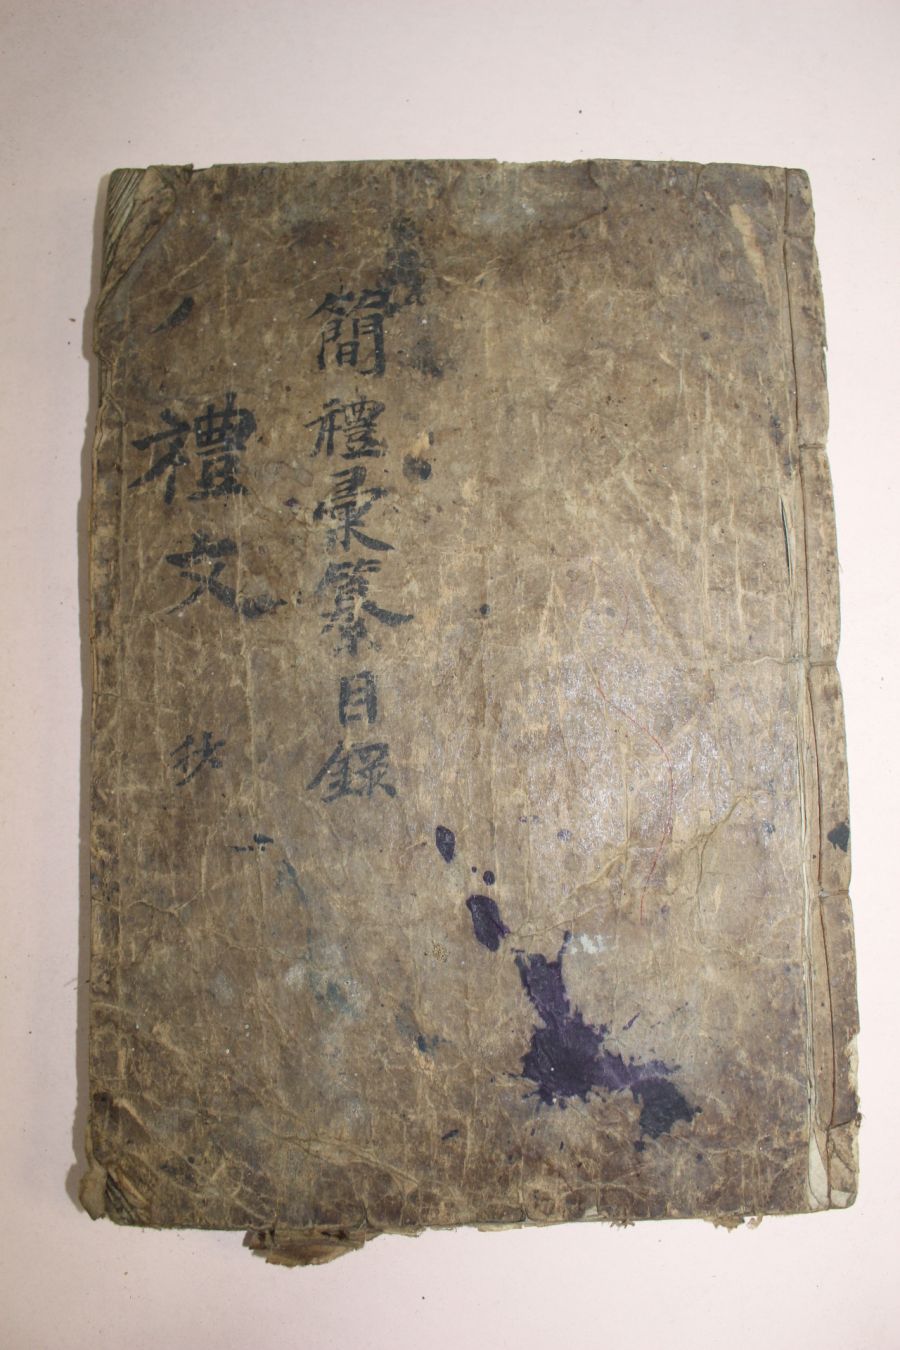 簡禮彙纂目錄
禮文 抄